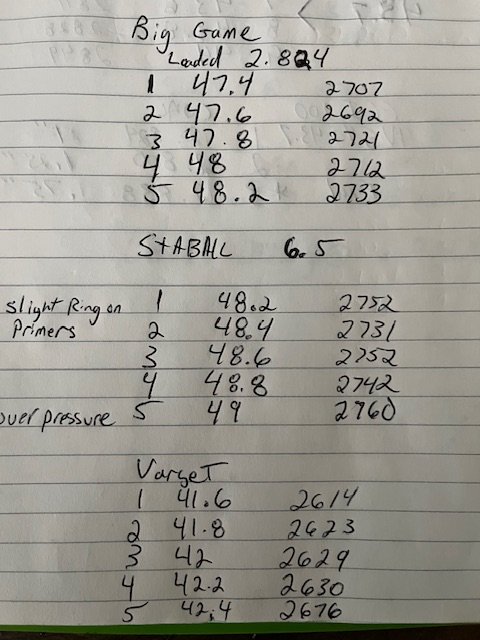 Big Game
Loaded 2.824
1 47.4 2707
2 47.6 2692
3 47.8 2721
4 48 2712
5 48.2 2733
StABALL 6.5
slight Ring on 1 48.2 2752
Primers 2 48.4 2731
3 48.6 2752
4 48.8 2742
over pressure 5 49 2760
Varget
1 41.6 2614
2 41.8 2623
3 42 2629
4 42.2 2630
5 42.4 2676